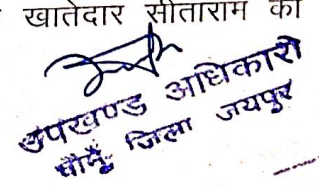 खातेदार सीताराम का
उपखण्ड अधिकारी
चौमूँ, जिला जयपुर